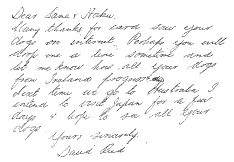 Dear Sane & Hoken.
Many thanks for card saw your
dogs on internet. Perhaps you will
drop me a line sometime and
let me know how all your dogs
from Ireland
Next time we go to Australia I
intend to visit Japan for a few
days & hope to see all your
dogs.
Yours sincerely.
David